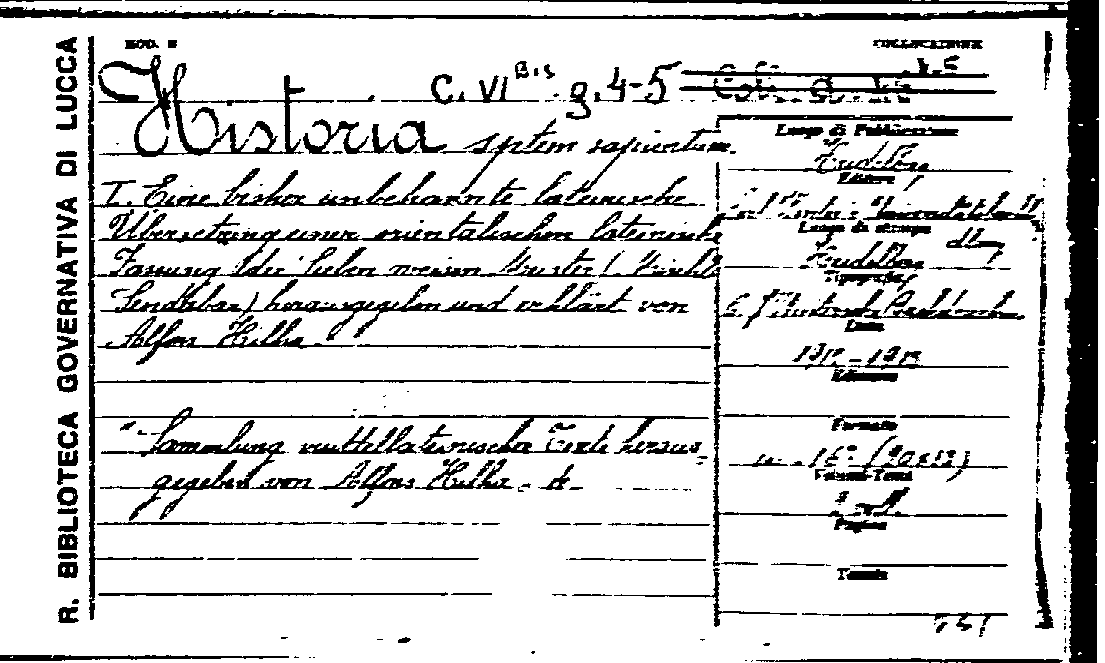 R. BIBLIOTECA GOVERNATIVA DI LUCCA
MOD. E
COLLOCAZIONE
C. VI Bis. g. 4-5
Historia septem sapientum.
I. Eine bisher unbekannte lateinische
Übersetzung einer orientalischen lateinische
Fassung (der Sieben weisen Meister (Mischle
Sendabar) herausgegeben und erklärt von
Alfons Hilka.
Sammlung mittellateinischer Texte heraus-
gegeben von Alfons Hilka. 4.
Luogo di Pubblicazione
Heidelberg
Editore
Carl Winter's Universitätsbuch
Luogo di stampa
Heidelberg
Tipografia
Winter
Anno
1912-1913
Edizione
Formato
in-16° (20x12)
Volumi-Tomi
2 vol.
Pagine
Tavole